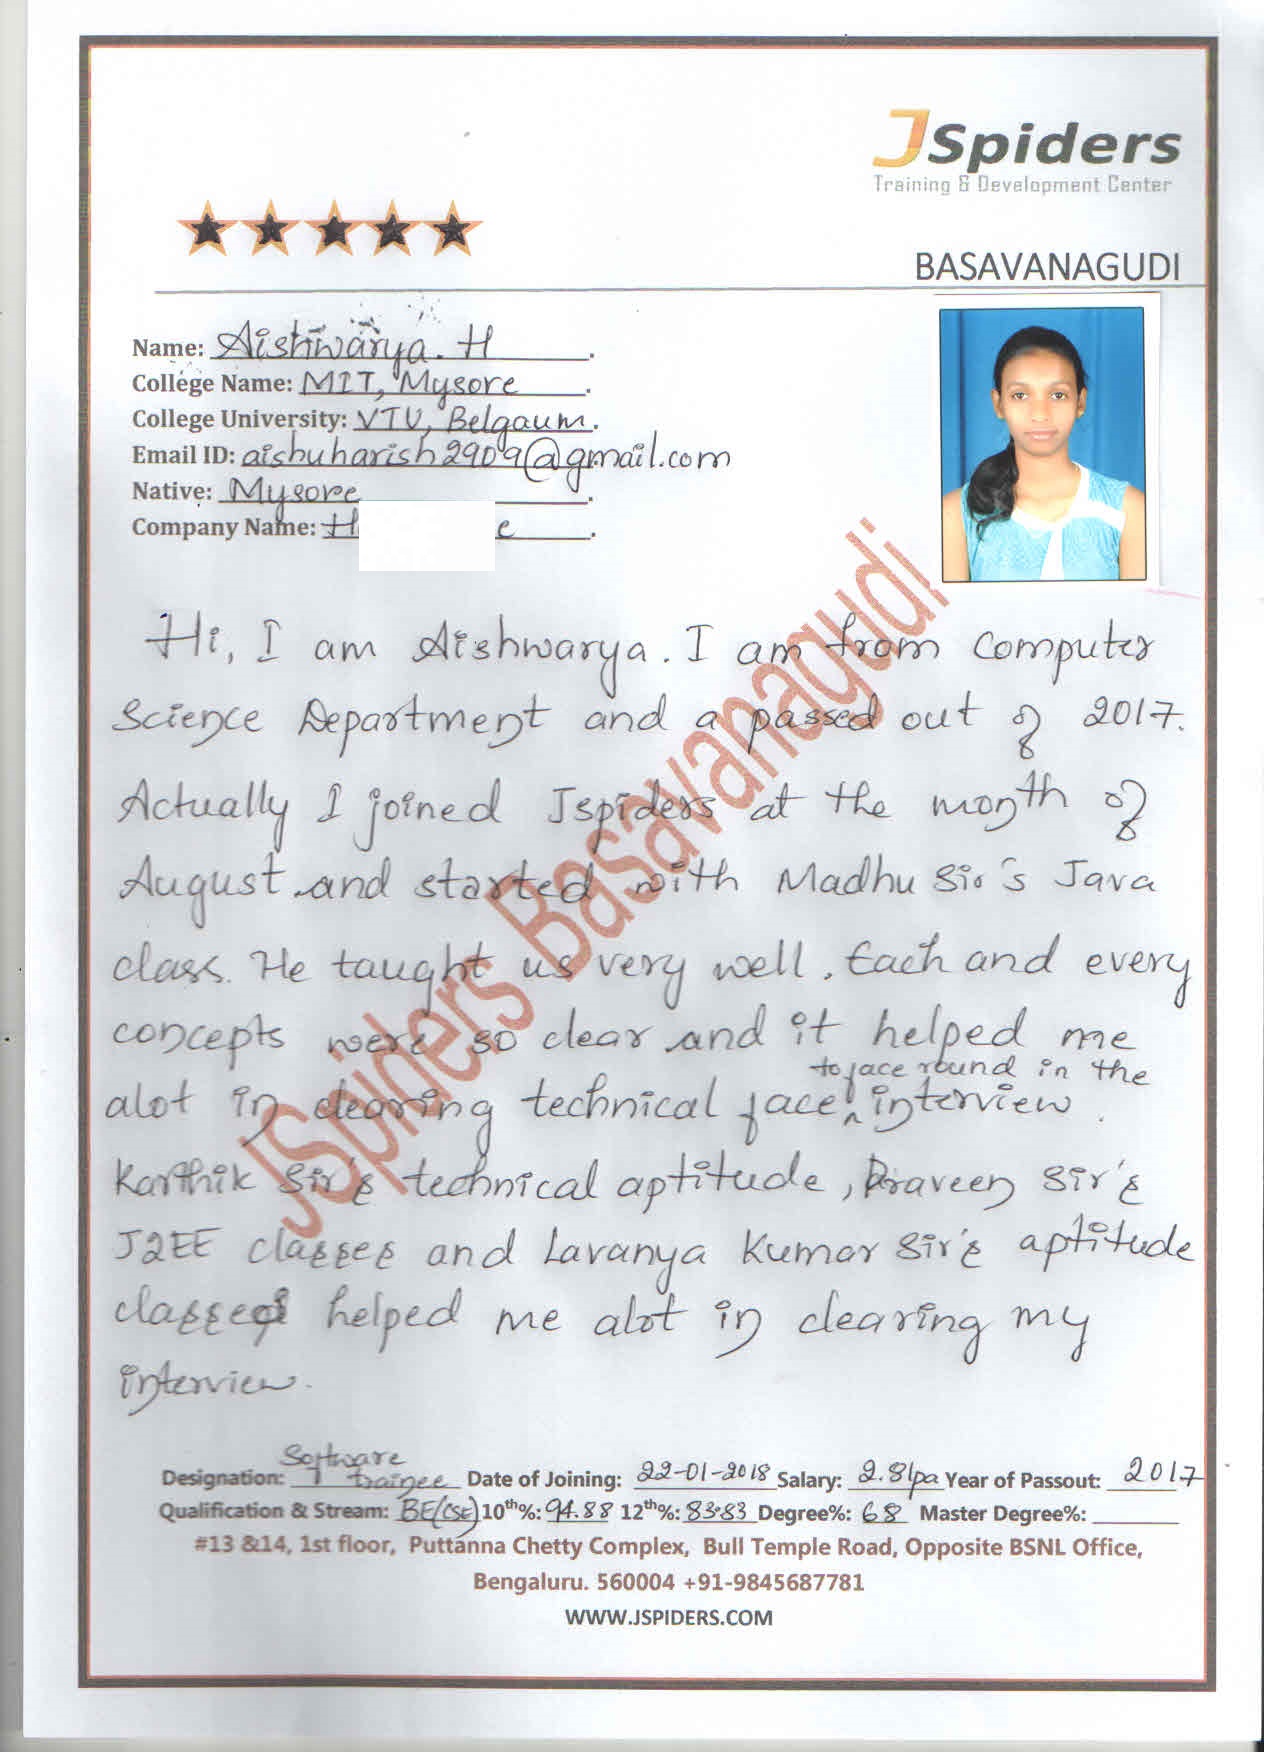 JSpiders
Training & Development Center
BASAVANAGUDI
Name: Aishwarya. H.
College Name: MIT, Mysore.
College University: VTU, Belgaum.
Email ID: aishuharish2909@gmail.com
Native: Mysore.
Company Name: H e.
Hi, I am Aishwarya. I am from Computer
Science Department and a passed out of 2017.
Actually I joined Jspiders at the month of
August and started with Madhu Sir's Java
class. He taught us very well. Each and every
concepts were so clear and it helped me
to face round in the
alot in clearing technical face interview.
Karthik Sir's technical aptitude, Praveen Sir's
J2EE classes and Lavanya Kumar Sir's aptitude
classes helped me alot in clearing my
interview.
JSpiders Basavanagudi
Designation: Software trainee Date of Joining: 22-01-2018 Salary: 2.8lpa Year of Passout: 2017
Qualification & Stream: BE(CSE) 10th%: 94.88 12th%: 83.83 Degree%: 68 Master Degree%:
#13 &14, 1st floor, Puttanna Chetty Complex, Bull Temple Road, Opposite BSNL Office,
Bengaluru. 560004 +91-9845687781
WWW.JSPIDERS.COM